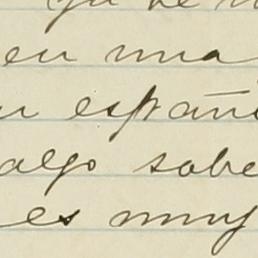 en una
en español
algo sobe
es muy